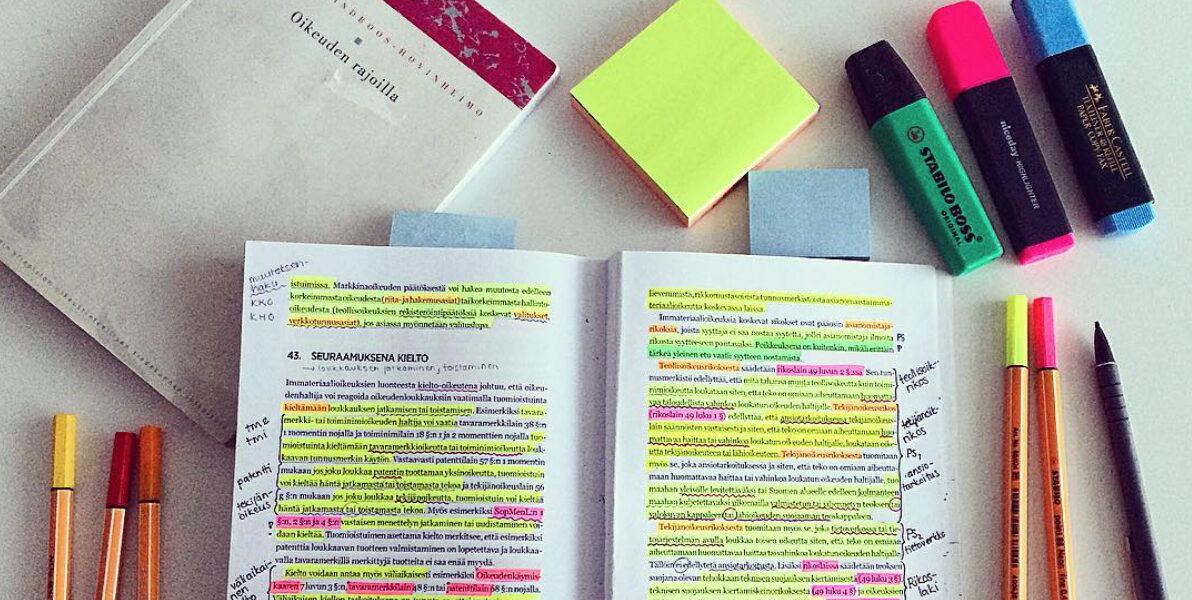 Oikeuden rajoilla
STABILO BOSS
ORIGINAL
niceday HIGHLIGHTER
FABER-CASTELL
TEXTLINER 48 REFILL
PAPER COPY FAX
muutoksen-
haku
KKO
KHO
istuimissa. Markkinaoikeuden päätöksestä voi hakea muutosta edelleen
korkeimmasta oikeudesta (riita- ja hakemusasiat) tai korkeimmasta hallinto-
oikeudesta (teollisoikeuksien rekisteröintipäätöksiä koskevat valitukset,
verkkotunnusasiat), jos asiassa myönnetään valituslupa.
43. SEURAAMUKSENA KIELTO
→ loukkauksen jatkaminen, toistaminen
Immateriaalioikeuksien luonteesta kielto-oikeutena johtuu, että oikeu-
denhaltija voi reagoida oikeudenloukkauksiin vaatimalla tuomioistuinta
kieltämään loukkauksen jatkamisen tai toistamisen. Esimerkiksi tavara-
merkki- tai toiminimioikeuden haltija voi vaatia tavaramerkkilain 38 §:n
1 momentin nojalla ja toiminimilain 18 §:n 1 ja 2 momenttien nojalla tuo-
mioistuinta kieltämään tavaramerkkioikeutta tai toiminimioikeutta louk-
kaavan tunnusmerkin käytön. Vastaavasti patenttilain 57 §:n 1 momentin
mukaan jos joku loukkaa patentin tuottamaa yksinoikeutta, tuomioistuin
voi kieltää häntä jatkamasta tai toistamasta tekoa ja tekijänoikeuslain 56
g §:n mukaan jos joku loukkaa tekijänoikeutta, tuomioistuin voi kieltää
häntä jatkamasta tai toistamasta tekoa. Myös esimerkiksi SopMenL:n 1
§:n, 2 §:n ja 4 §:n vastaisen menettelyn jatkaminen tai uudistaminen voi-
daan kieltää. Tuomioistuimen asettama kielto merkitsee, että esimerkiksi
patenttia loukkaavan tuotteen valmistaminen on lopetettava ja loukkaa-
valla tavaramerkillä merkittyjä tuotteita ei saa enää myydä.
Kielto voidaan antaa myös väliaikaisesti esimerkiksi Oikeudenkäymis-
kaaren 7 luvun 3 §:n, tavaramerkkilain 48 §:n tai patenttilain 68 §:n nojalla.
tm
tmi
patentti
tekijän-
oikeus
väliaikai-
nen
lievenumista, rikkomustasoisista tunnusmerkistöistä asianomaistaimma-
teriaalioikeutta koskevassa laissa.
Immateriaalioikeuksia koskevat rikokset ovat pääosin asianomistaja-
rikoksia, joista syyttäjä ei saa nostaa syytettä, jollei asianomistaja ilmoita
rikosta syytteeseen pantavaksi. Poikkeuksena on kuitenkin, mikäli erittäin
tärkeä yleinen etu vaatii syytteen nostamista.
Teollisoikeusrikoksesta säädetään rikoslain 49 luvun 2 §:ssä. Sen tun-
nusmerkistö edellyttää, että mitä tahansa muuta teollisoikeutta kuin toimi-
nimioikeutta loukataan siten, että teko on omiaan aiheuttamaan huomatta-
vaa taloudellista vahinkoa loukatun oikeuden haltijalle. Tekijänoikeusrikos
(rikoslain 49 luku 1 §) edellyttää, että ansiotarkoituksessa tekijänoikeus-
lain säännösten vastaisesti ja siten, että teko on omiaan aiheuttamaan huo-
mattavaa haittaa tai vahinkoa loukatun oikeuden haltijalle, loukataan oike-
utta tekijänoikeuteen tai lähioikeuteen. Tekijänoikeusrikoksesta tuomitaan
myös se, joka ansiotarkoituksessa ja siten, että teko on omiaan aiheutta-
maan huomattavaa haittaa tai vahinkoa loukatun oikeuden haltijalle, tuo
maahan yleisölle levitettäväksi tai Suomen alueelle edelleen kolmanteen
maahan kuljetettavaksi ulkomailla valmistetun tai jäljennetyn teoksen tai
valokuvan kappaleen tai lähioikeuden suojaaman tuoskappaleen.
Tekijänoikeusrikoksesta tuomitaan myös se, joka tietoverkossa tai tie-
tojärjestelmän avulla loukkaa toisen oikeutta siten, että teko on omiaan
aiheuttamaan huomattavaa haittaa tai vahinkoa loukatun oikeuden haltijalle.
Tällöin ei edellytetä ansiotarkoitusta. Lisäksi rikoslaissa säädetään teoksen
suojana olevan tehokkaan teknisen suojauksen kiertämisestä (49 luku 3 §)
teknisen suojauksen kiertämiskeinorikoksesta (49 luku 4 §) ja oikeuksien
PS
P
teollisoik-
rikos
tekijänoik-
rikos
PS,
ansio-
tarkoitus
PS,
tietoverkko
Rikos-
laki
STABILO